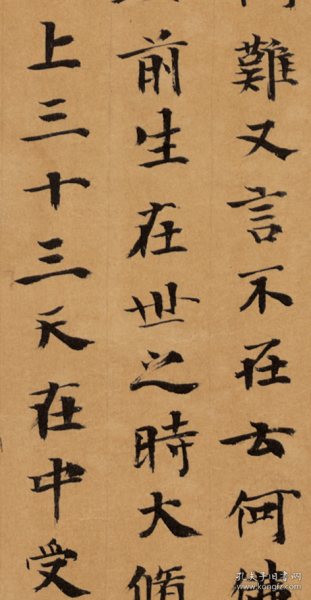 難又言不在云何
前生在世之時大脩
上三十三天在中受
孔夫子旧书网
www.kongfz.com